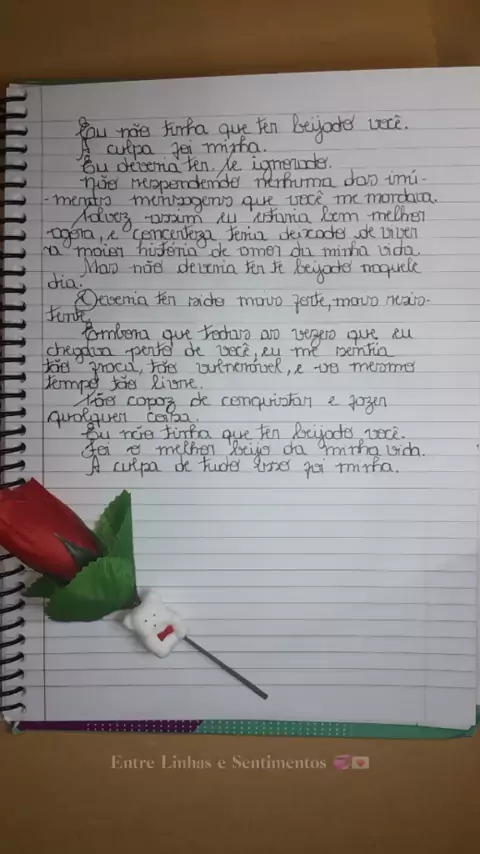 Eu não tinha que ter beijado você.
A culpa foi minha.
Eu deveria ter te ignorado.
Não respondendo nenhuma das inú-
-meras mensagens que você me mandava.
Talvez assim eu estaria bem melhor
agora, e concerteza teria deixado de viver
a maior história de amor da minha vida.
Mas não deveria ter te beijado naquele
dia.
Deveria ter sido mais forte, mais resis-
tente.
Embora que todas as vezes que eu
chegava perto de você, eu me sentia
tão fraca, tão vulnerável, e ao mesmo
tempo tão livre.
Tão capaz de conquistar e fazer
qualquer coisa.
Eu não tinha que ter beijado você.
Foi o melhor beijo da minha vida.
A culpa de tudo isso foi minha.
Entre Linhas e Sentimentos 💞💌